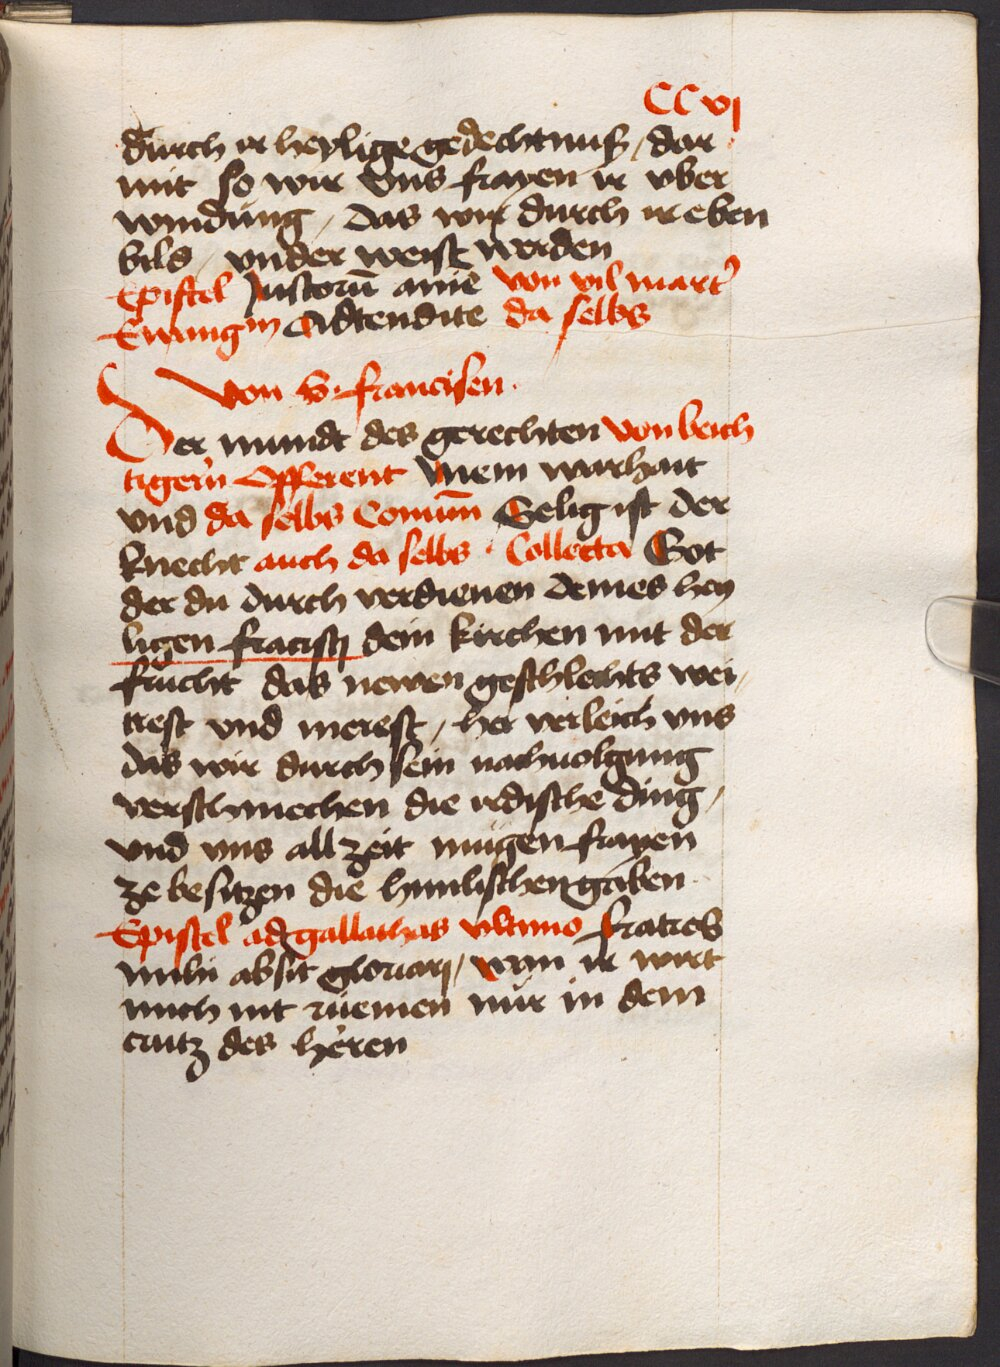 CC vj
durch ir heylige gedechtnuß / dar
mit so wir vns frayen ir vber
windung / das wir durch ir eben
bild / vnder weist werden
Epistel Justorū anīe von vil mart̕
Ewangm Adtendite da selbs
Von S. francisen.
Der mundt des gerechten von beich
tigern̄ Offerent Mein warhait
vnd da selbs Comūm Selig ist der
knecht auch da selbs. Collecta Got
der du durch verdienen deines hey
ligen fracistj dein kirchen mit der
frücht das newen geschlechts wei
trest vnd merest / her verleich vns
das wir durch sein nachuolgung
verschmechen die irdische ding /
vnd vns all zeit mügen frayen
ze besitzen die himlischen gaben.
Epistel ad gallathas vltimo fratres
mihi absit gloriarj / wan ir wirt
mich nit rüemen nür in dem
crütz des heren